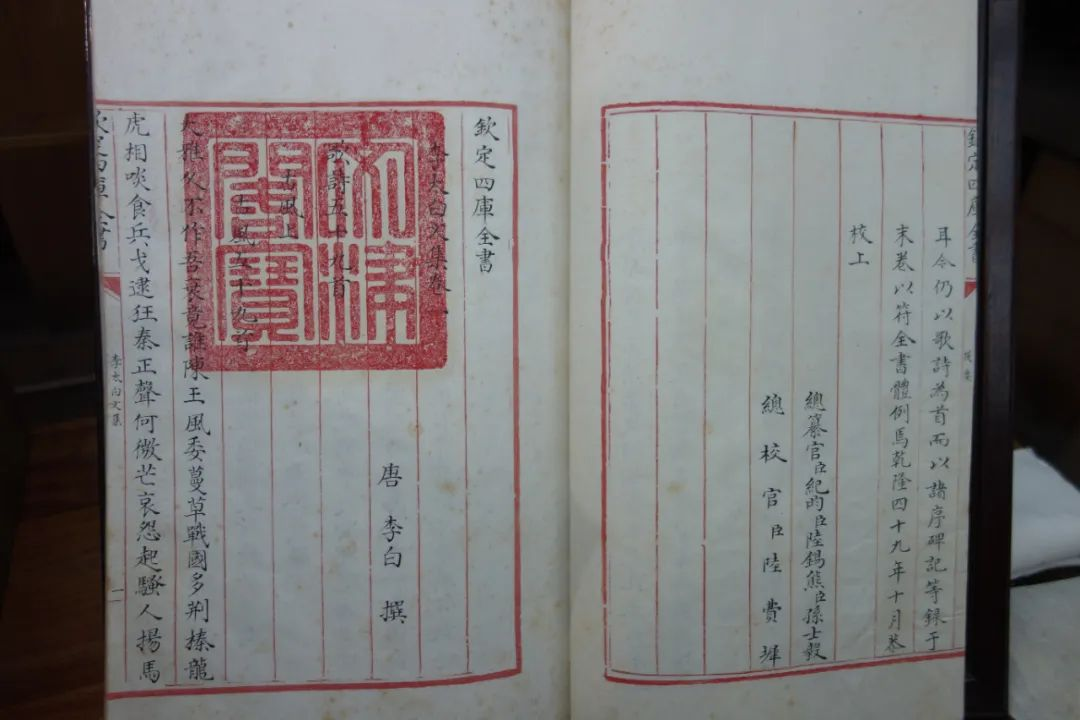 欽定四庫全書
提要
耳今仍以歌詩為首而以諸序碑記等錄于
末卷以符全書體例焉乾隆四十九年十月恭
校上
總纂官臣紀昀臣陸錫熊臣孫士毅
總校官臣陸費墀
欽定四庫全書
李太白文集卷一
唐李白撰
歌詩五十九首
古風上
古風五十九首
大雅久不作吾衰竟誰陳王風委蔓草戰國多荆榛龍
虎相啖食兵戈逮狂秦正聲何微茫哀怨起騷人揚馬
文津閣寶
欽定四庫全書
李太白文集
一